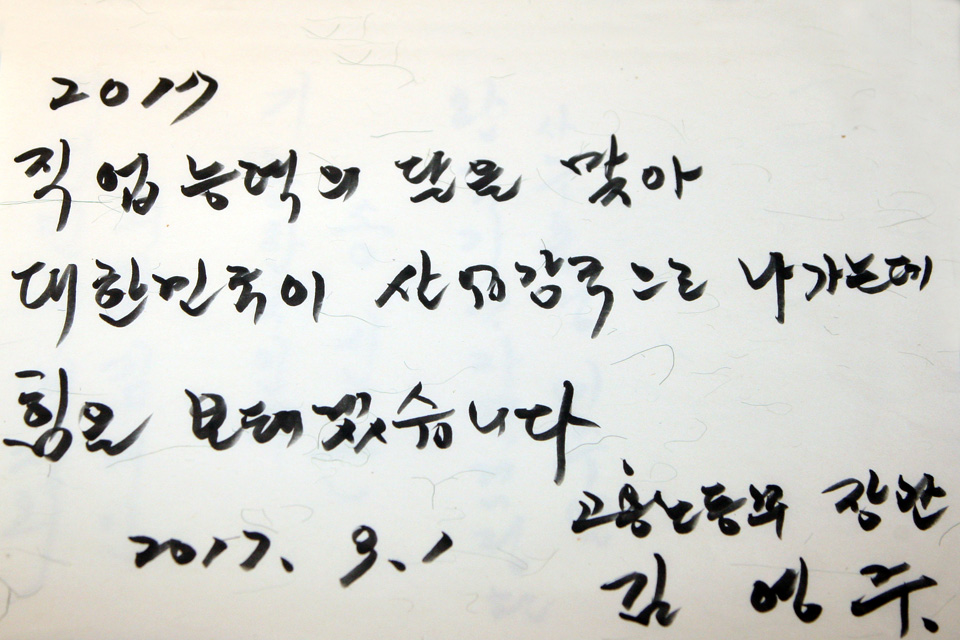 2017
직업능력의 달을 맞아
대한민국이 산업강국으로 나가는데
힘을 보태겠습니다
2017. 9. 1
고용노동부 장관
김영주.